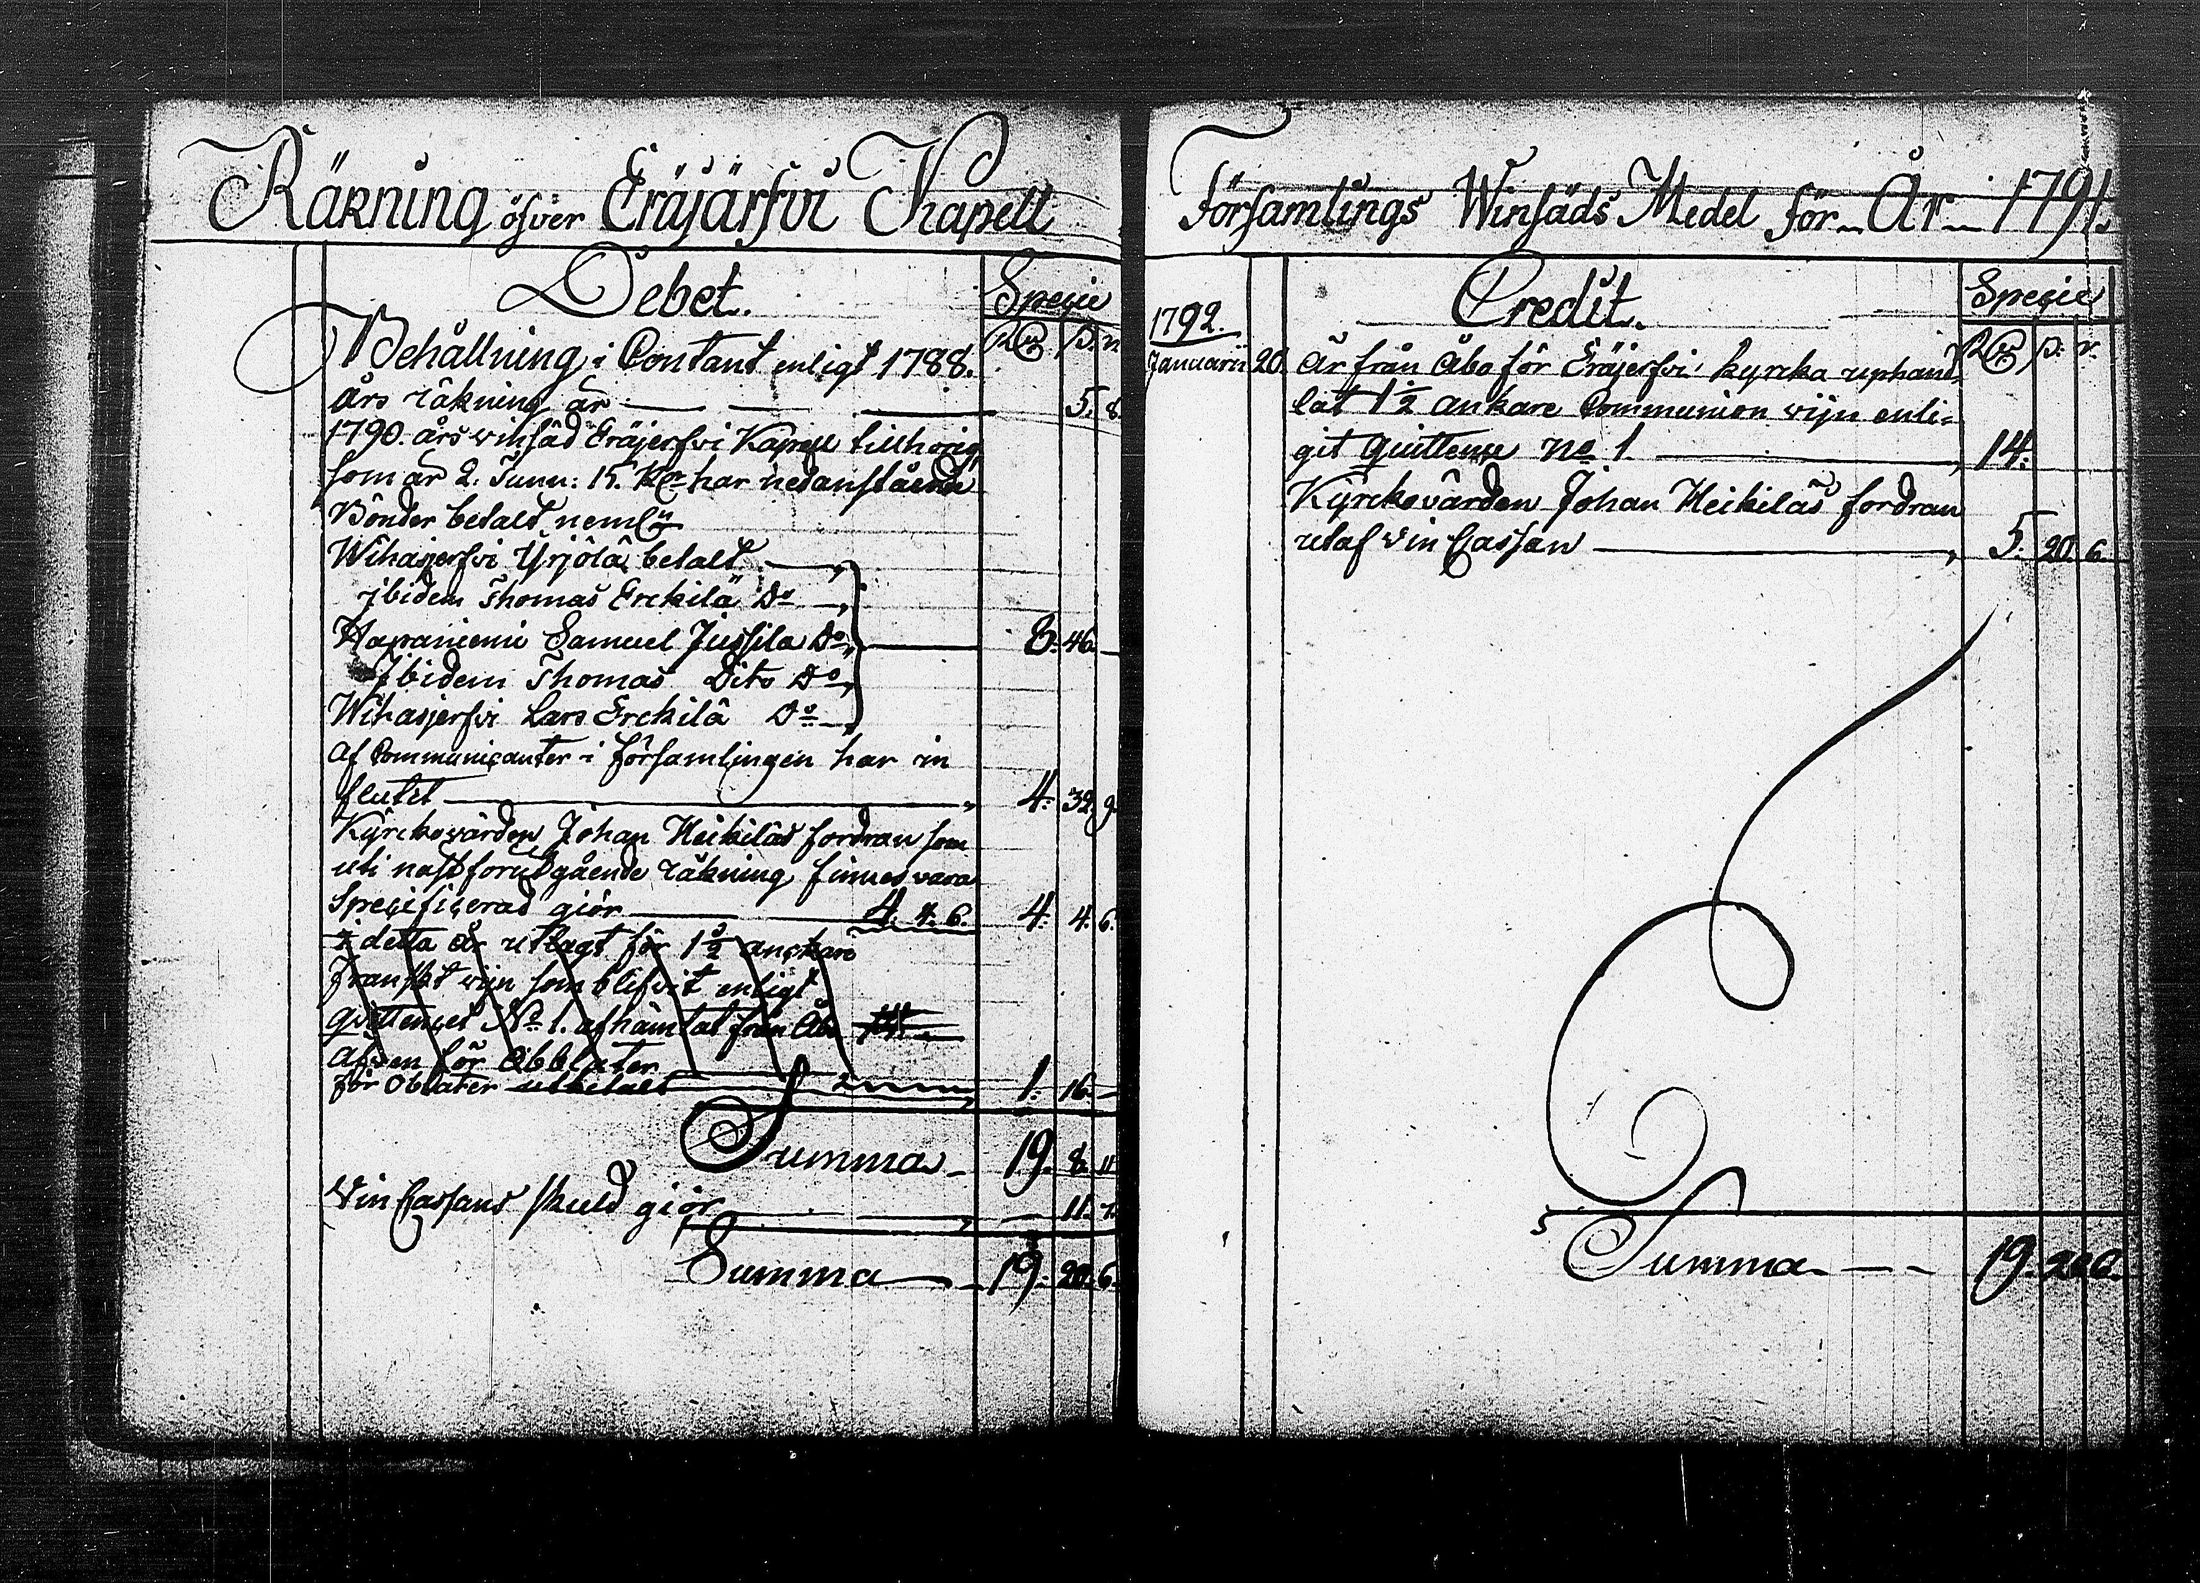 Räkning öfver Eräjärfvi Kapell
Debet. Specie
Rd. s. r.
Behållning i Contant enligt 1788.
Års räkning är 5. 8.
1790. års vinsäd Eräjerfvi Kapell tillhörig
som är 2. Tunn: 15. Kr har nedanstående
Bönder betalt neml:n
Wihasjerfvi Yrjölä betalt
jbidem Thomas Erckilä Do
Haapaniemi Samuel Jussila Do 8. 46. –
Jbidem Thomas Dito Do
Wihasjerfvi Lars Erckilä Do
Af Communicanter i församlingen har in
flutit 4. 32. 9.
Kyrckovärden Johan Heikiläs fordran som
uti nästforutgående räkning finnes vara
Specificerad giör 4. 4. 6. 4. 4. 6.
i detta år utlagt för 1½ anckare
Franskt vijn som blifvit enligt
quittencet No 1. afhämtat från Åbo 14.
äfven för Obblater
för Oblater utbetalt 1. 16. –
Summa 19. 8. 11
Vin Cassans skuld giör – 11. 7.
Summa 19. 20. 6.
Församlings Winsäds Medel för År 1791.
1792. Credit. Specie
Rd. s. r.
Januarii 20. Är från Åbo för Eräjerfvi kyrcka uphand-
lat 1½ ankare Communion vijn enli-
git quittence No 1. 14.
Kyrckovärden Johan Heikiläs fordran
utaf Vin Cassan 5. 20. 6.
Summa 19. 20 6.